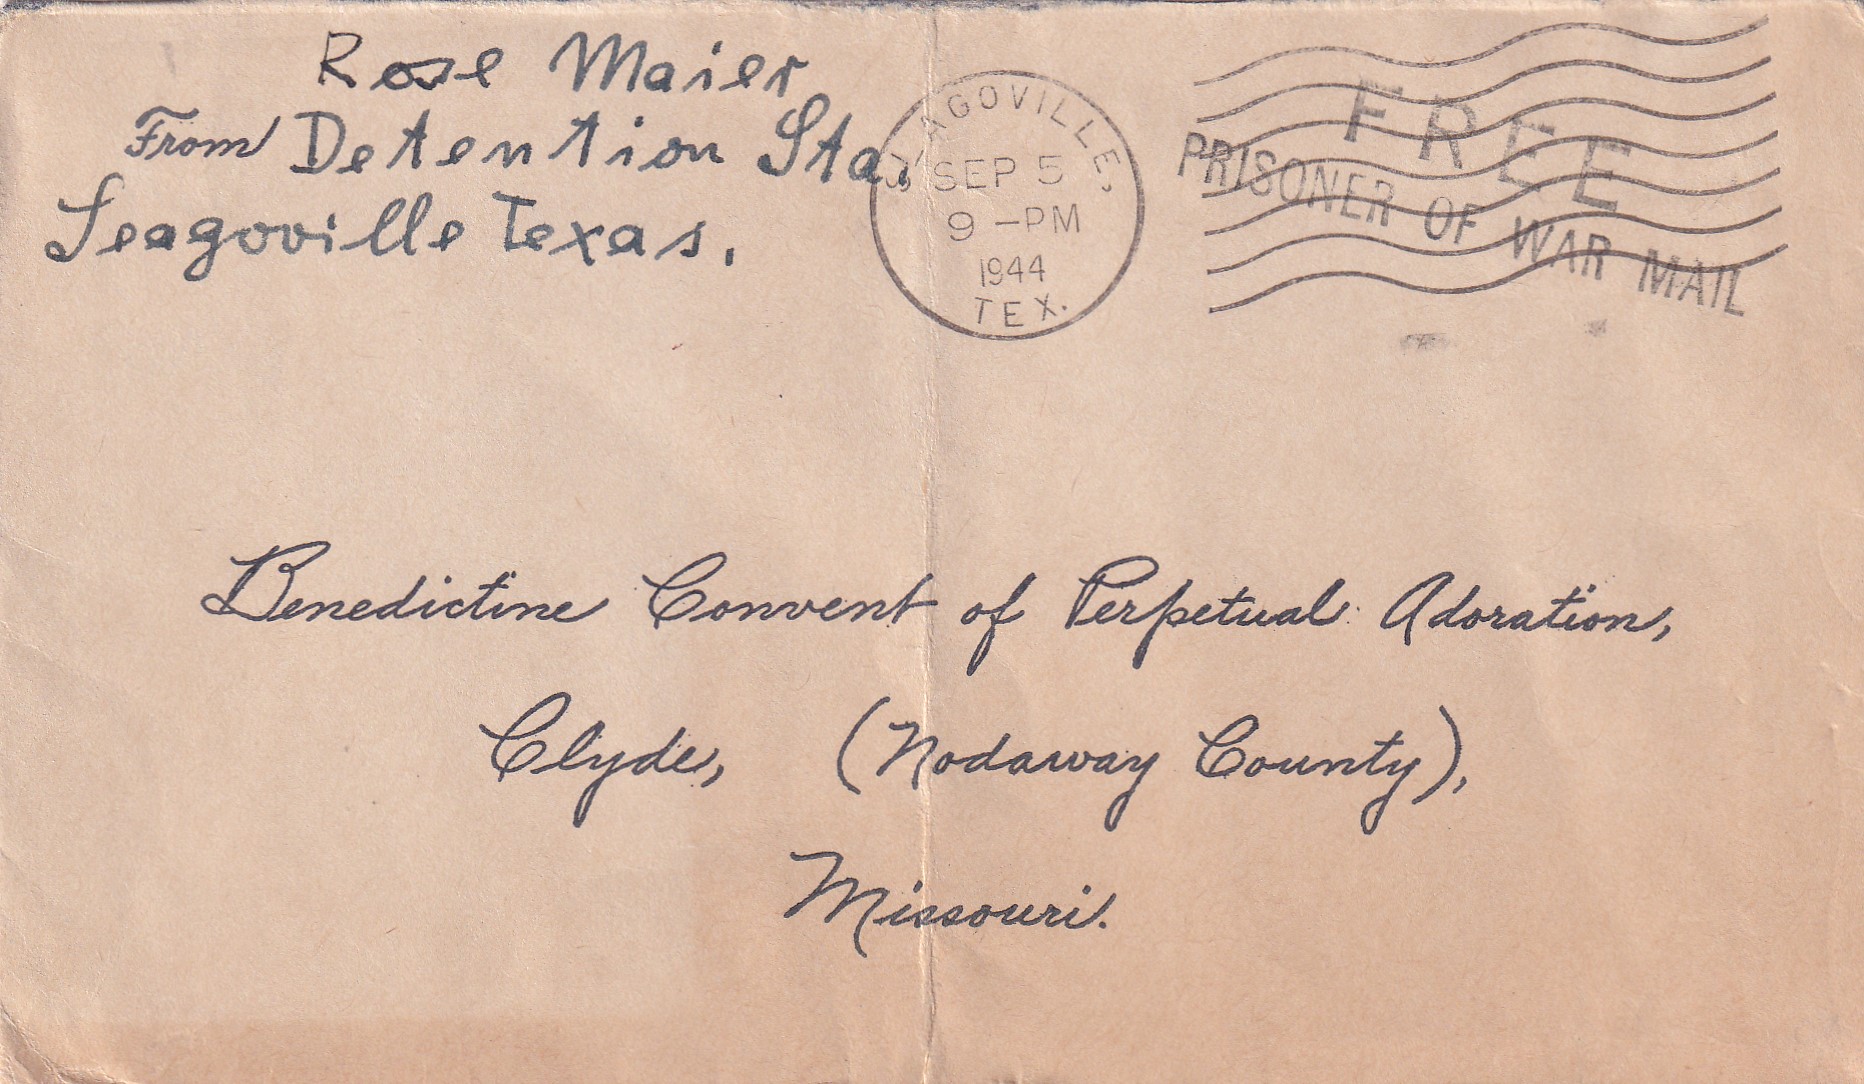 Rose Maier
From Detention Sta.
Seagoville Texas.
SEAGOVILLE,
SEP 5
9 -PM
1944
TEX.
FREE
PRISONER OF WAR MAIL
Benedictine Convent of Perpetual Adoration,
Clyde, (Nodaway County),
Missouri.